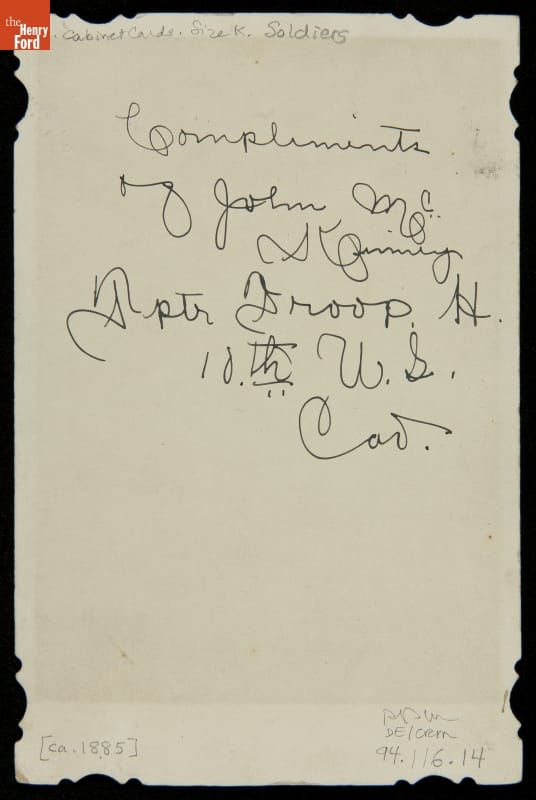 the
Henry
Ford
Cabinet Cards. Size K. Soldiers
Compliments
of John Mc
Kinney
Tptr Troop. H.
10.th U.S.
Cav.
[ca. 1885]
DE/CRM
94.116.14